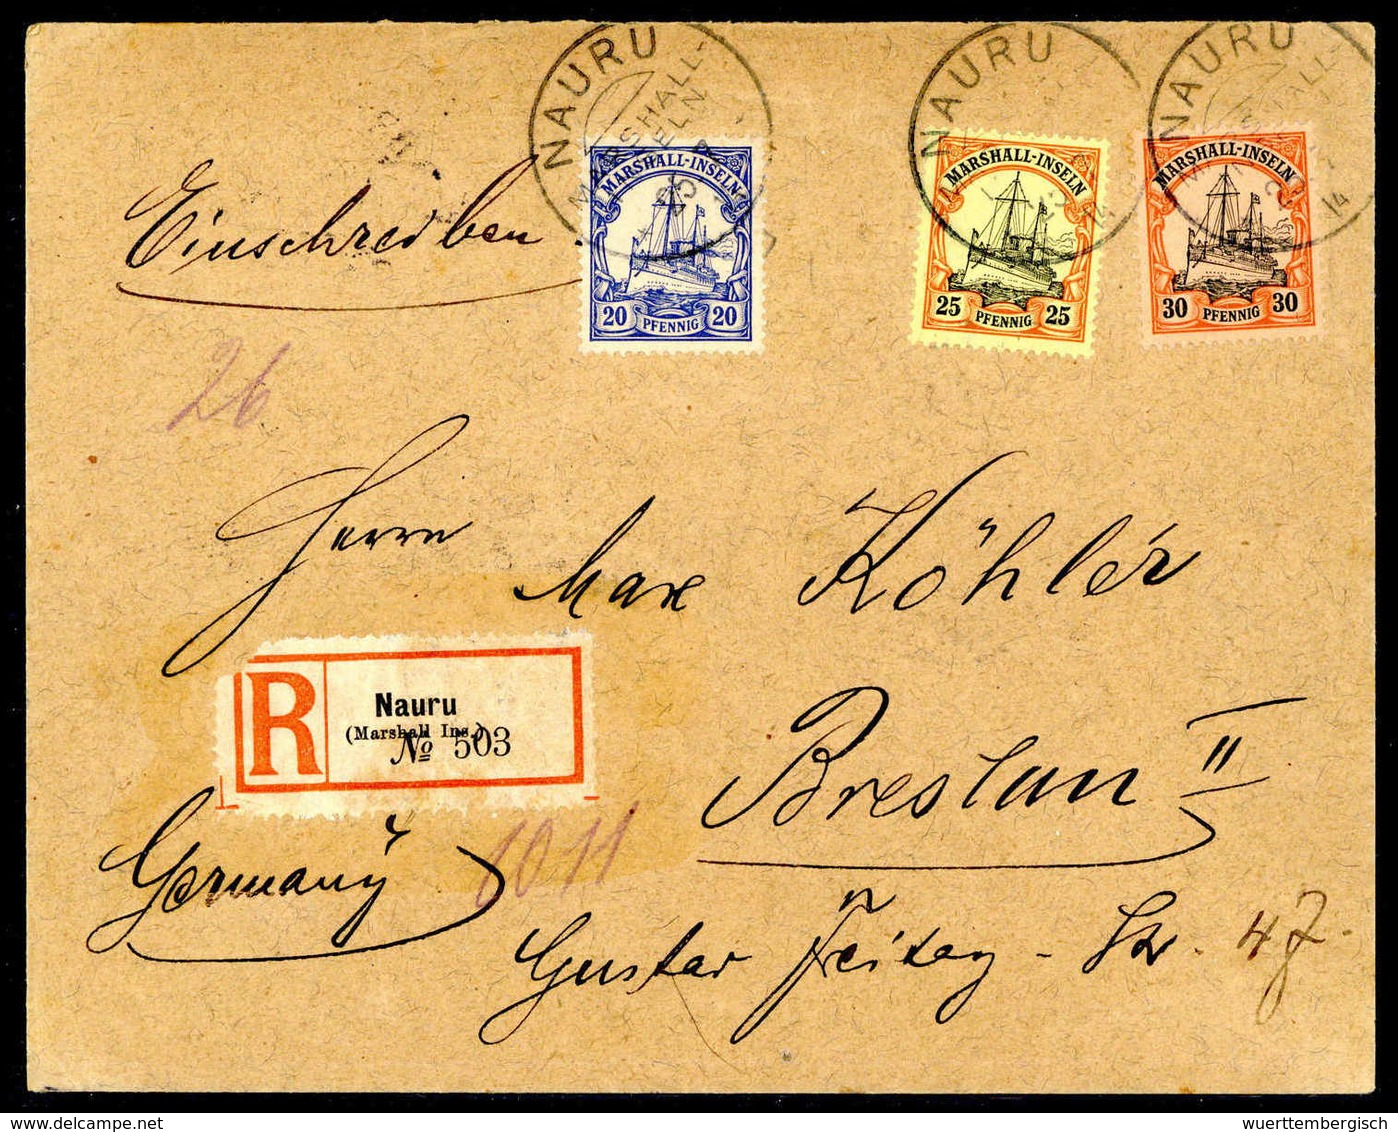 NAURU
MARSHALL-
INSELN
NAURU
14
NAURU
14
MARSHALL-INSELN
20 PFENNIG 20
MARSHALL-INSELN
25 PFENNIG 25
MARSHALL-INSELN
30 PFENNIG 30
Einschreiben
26
Herrn
Max Köhler
R
Nauru
(Marshall Ins.)
No 503
Breslau II
Germany
1011
Gustav Freitag - Str. 47.
delcampe.net
wuerttembergisch